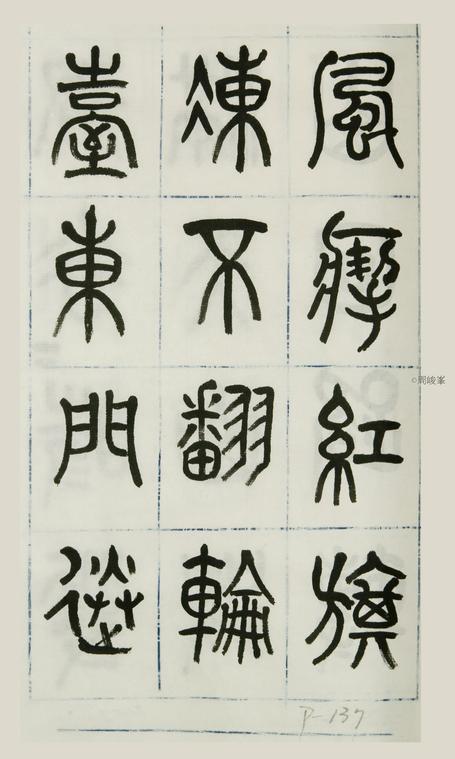 風掣紅旗
凍不翻輪
臺東門送
©周峻峯
P-137